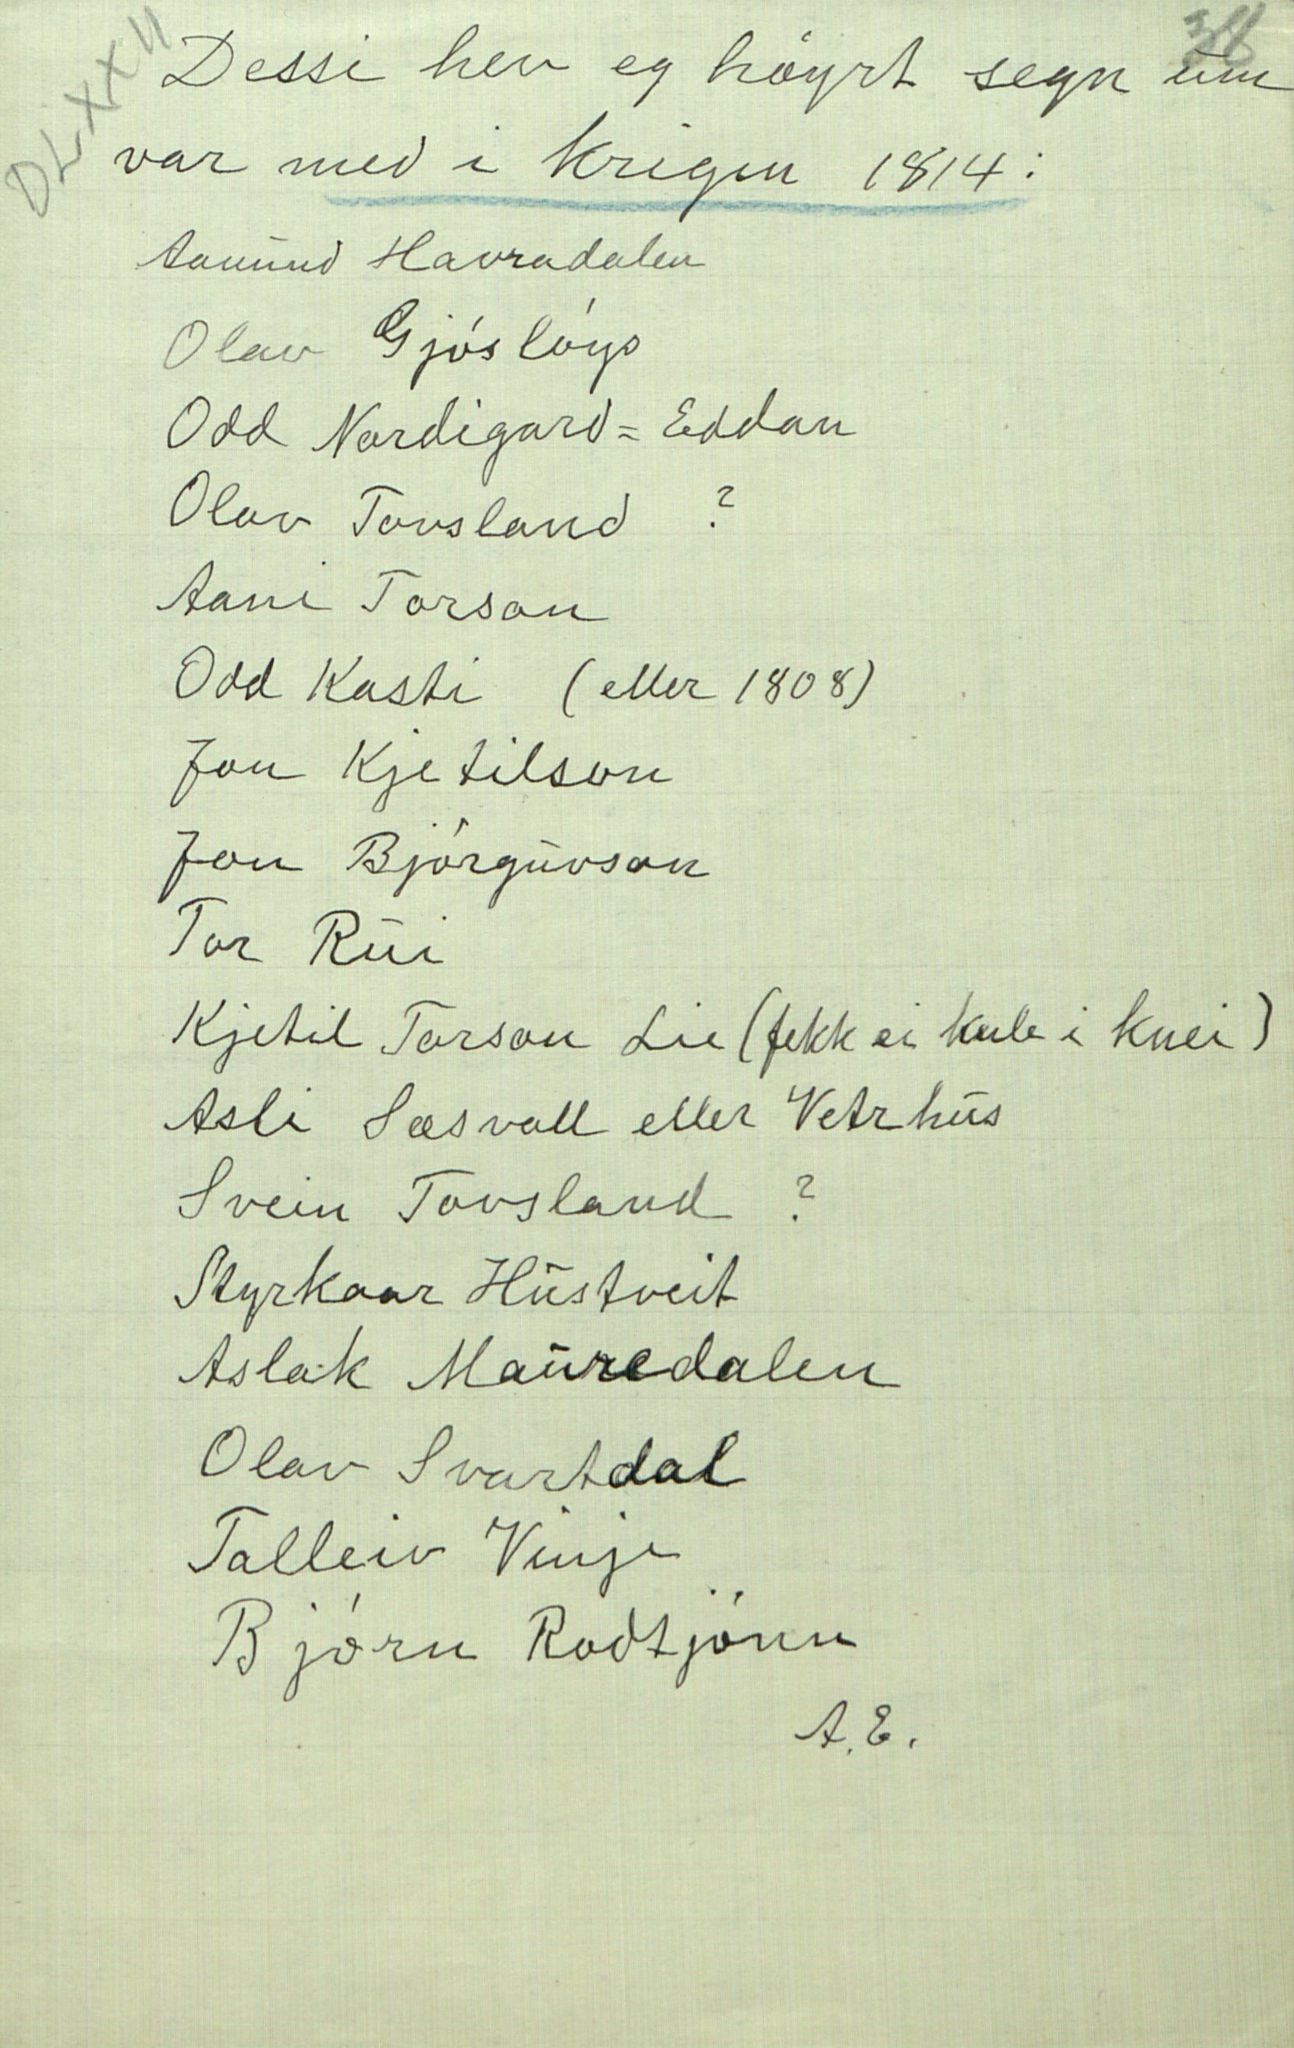 DLXXII
38
Dessi hev eg høyrt segn um
var med i krigen 1814:
Aamund Havradalen
Olav Gjósløys
Odd Nordigard=Eddan
Olav Tovsland ?
Aani Torson
Odd Kasti (eller 1808)
Jon Kjetilson
Jon Bjórguvson
Tor Rui
Kjetil Torson Lie (fekk ei kule i knei)
Asli Sæsvall eller Vetrhus
Svein Tovsland ?
Styrkaar Hustveit
Aslak Mauredalen
Olav Svartdal
Talleiv Vinje
Bjórn Rodtjónn
A.E.